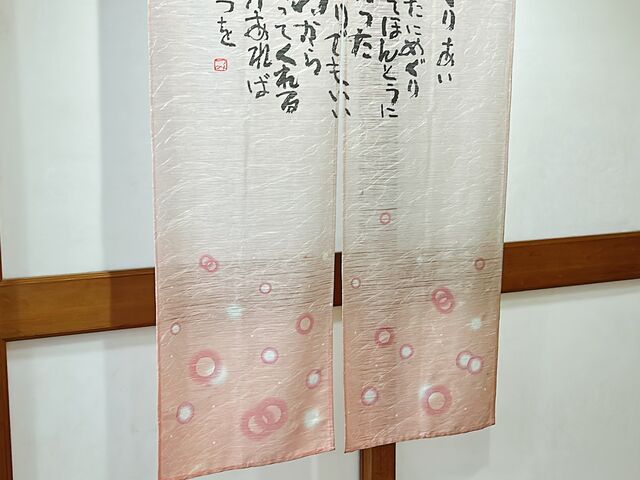 りあい
たにめぐり
てほんとうに
った
りでもいい
から
ってくれる
があれば
つを